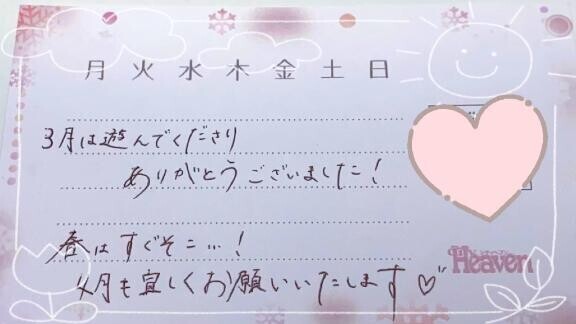 月 火 水 木 金 土 日
3月は遊んでくださり
ありがとうございました!
春はすぐそこ…!
4月も宜しくお願いいたします♡
Heaven